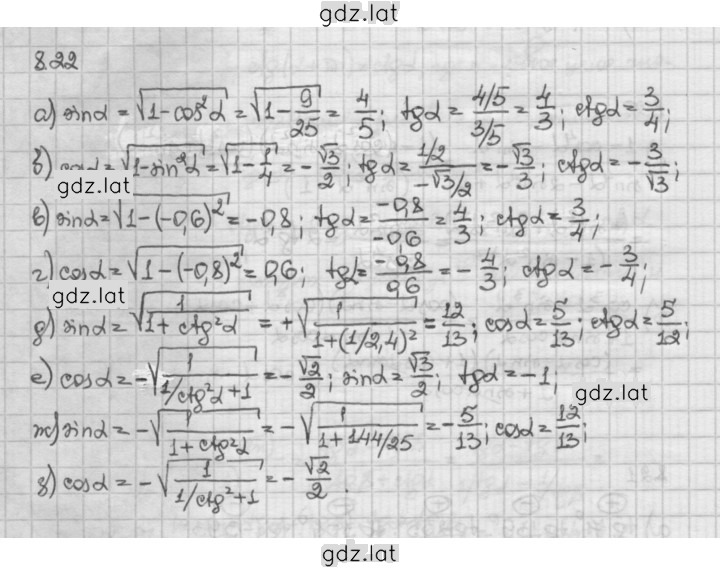 gdz.lat
8.22
а) sinα = √(1-cos²α) = √(1-9/25) = 4/5; tgα = (4/5)/(3/5) = 4/3; ctgα = 3/4;
б) cosα = √(1-sin²α) = √(1-1/4) = -√3/2; tgα = (1/2)/(-√3/2) = -√3/3; ctgα = -3/√3;
gdz.lat
в) sinα = √(1-(-0,6)²) = -0,8; tgα = -0,8/-0,6 = 4/3; ctgα = 3/4;
г) cosα = √(1-(-0,8)²) = 0,6; tgα = -0,8/0,6 = -4/3; ctgα = -3/4;
gdz.lat
д) sinα = √(1/(1+ctg²α)) = +√(1/(1+(1/2,4)²)) = 12/13; cosα = 5/13; ctgα = 5/12;
е) cosα = -√(1/(1/ctg²α+1)) = -√2/2; sinα = √3/2; tgα = -1;
gdz.lat
ж) sinα = -√(1/(1+ctg²α)) = -√(1/(1+144/25)) = -5/13; cosα = 12/13;
з) cosα = -√(1/(1/ctg²+1)) = -√2/2.
gdz.lat